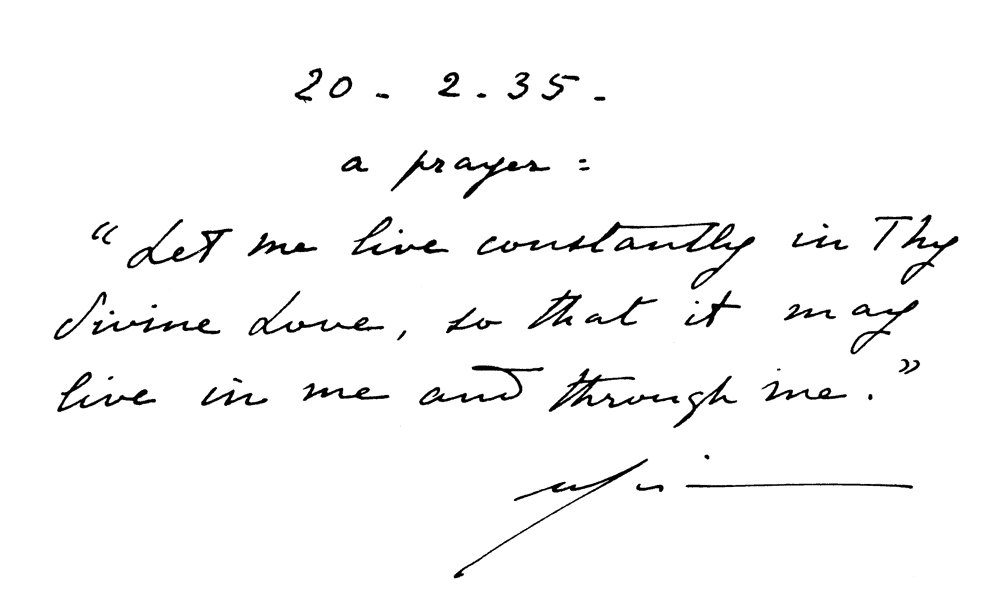 20 - 2.35.-
a prayer :
“Let me live constantly in Thy
divine Love, so that it may
live in me and through me.”